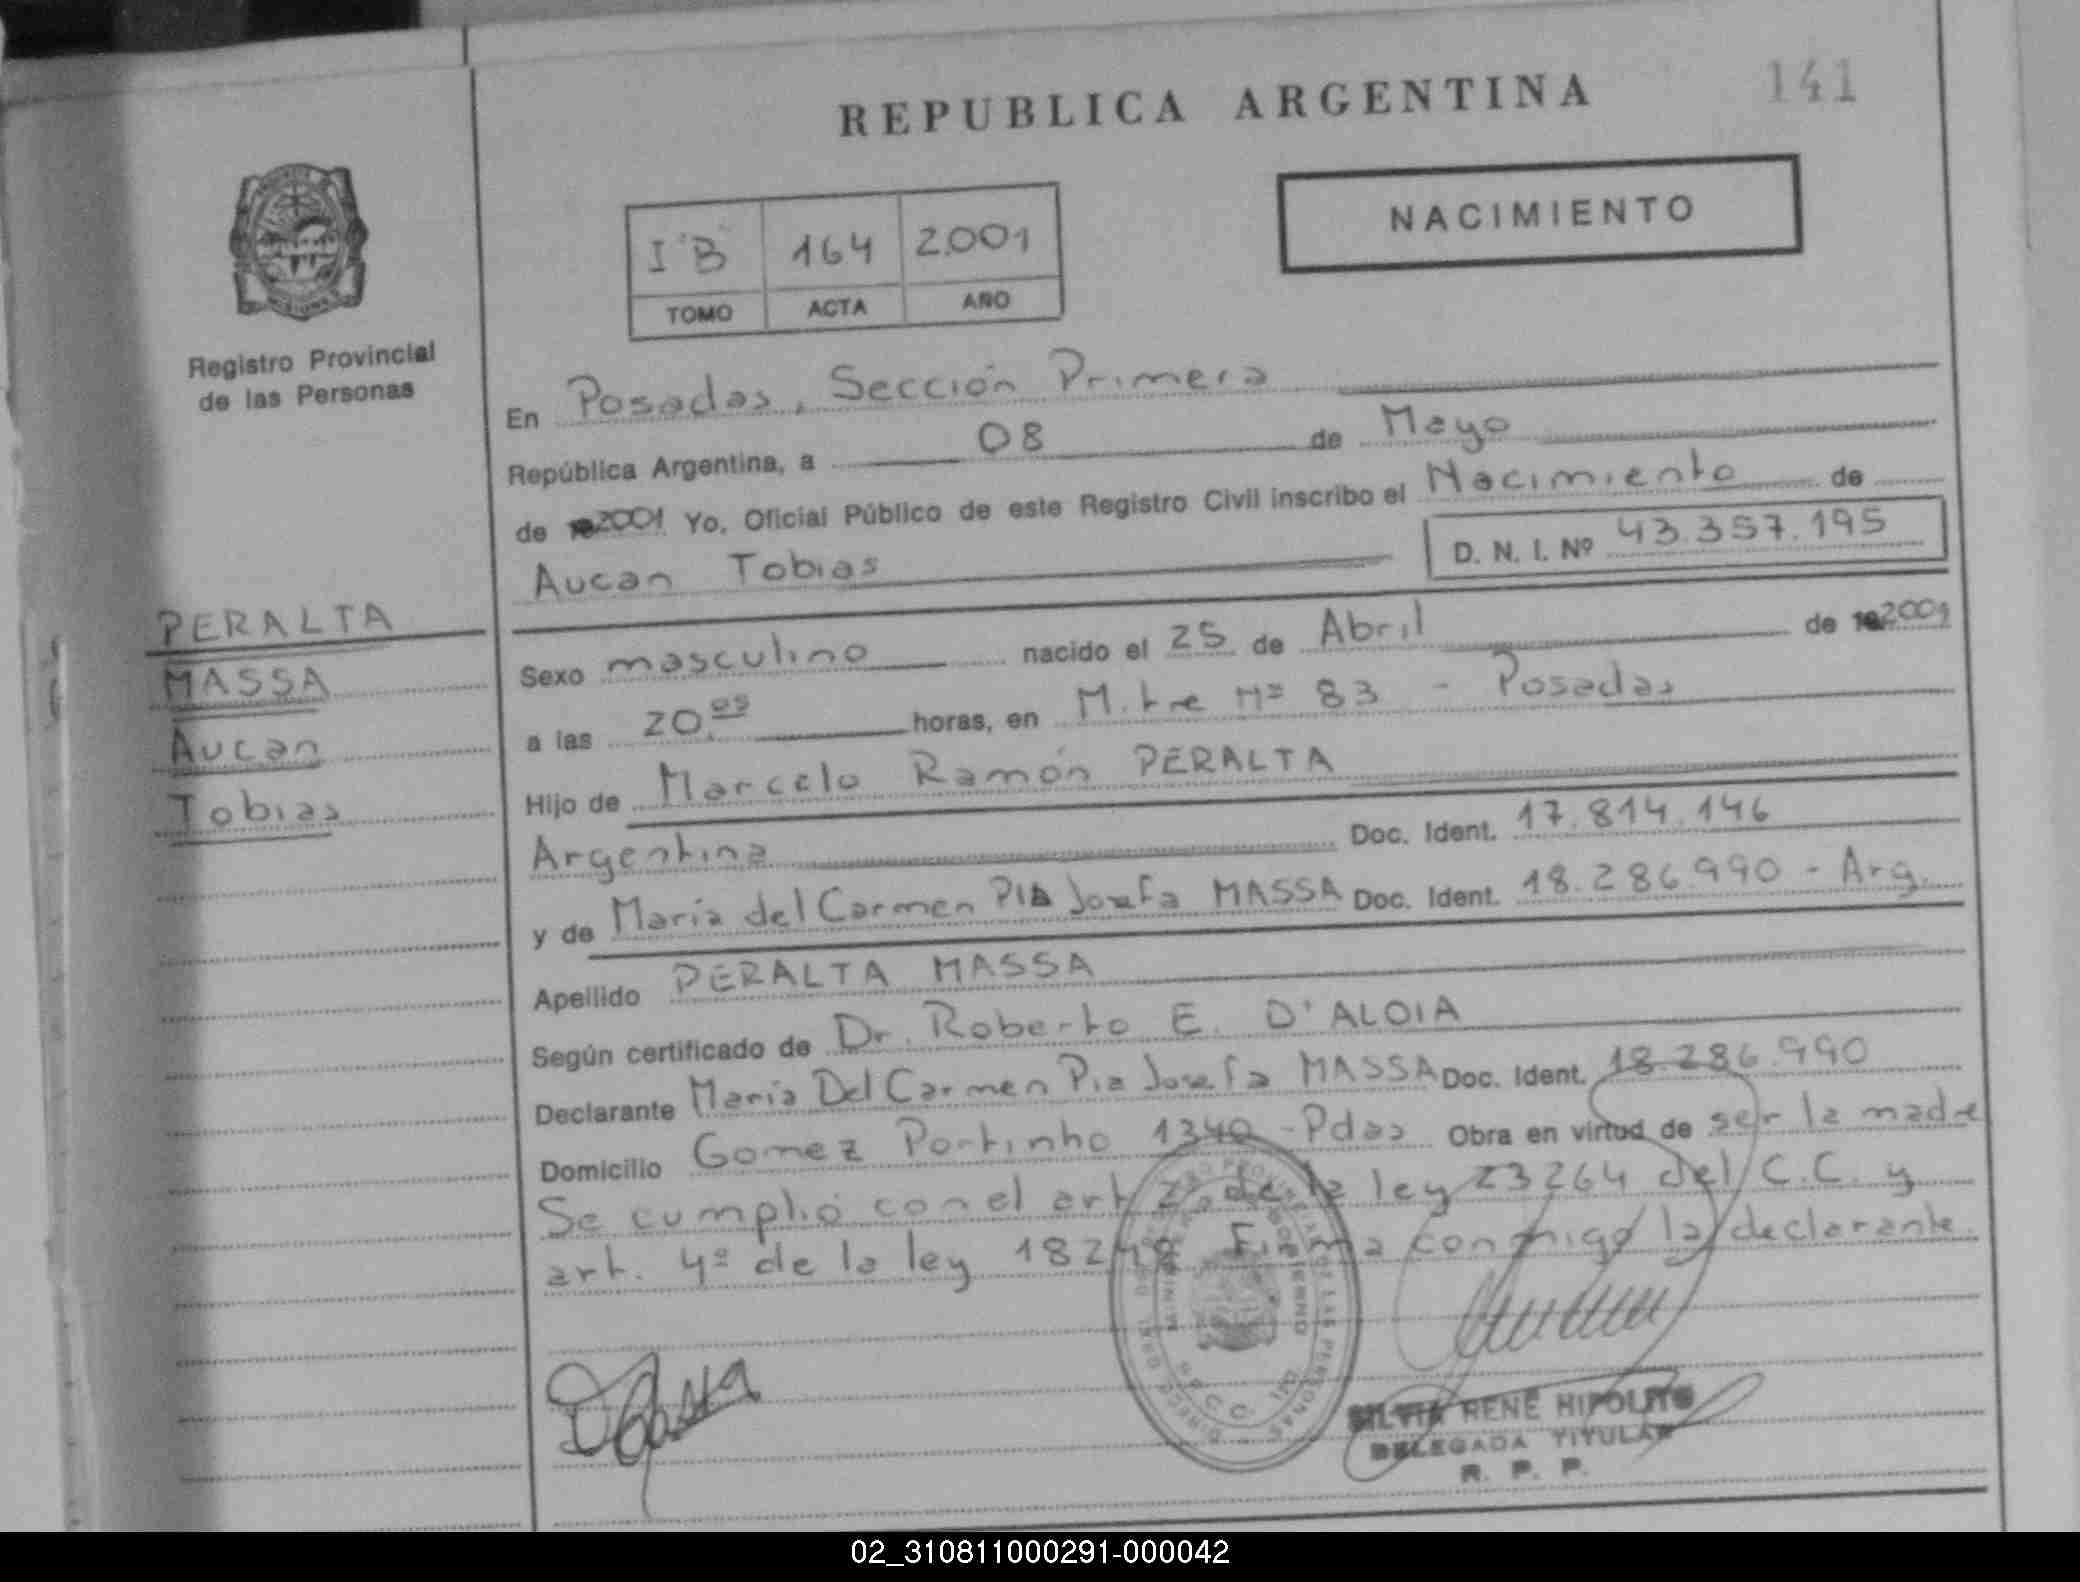 REPUBLICA ARGENTINA
141
NACIMIENTO
I "B" 164 2.001
TOMO ACTA AÑO
Registro Provincial
de las Personas
En Posadas, Sección Primera
República Argentina, a 08 de Mayo
de 2001 Yo, Oficial Público de este Registro Civil inscribo el Nacimiento de
Aucan Tobias D. N. I. Nº 43.357.195
PERALTA
MASSA
Aucan
Tobias
Sexo masculino nacido el 25 de Abril de 2001
a las 20.05 horas, en Mitre Nº 83 - Posadas
Hijo de Marcelo Ramón PERALTA
Argentina Doc. Ident. 17.814.146
y de María del Carmen PIA Josefa MASSA Doc. Ident. 18.286.990 - Arg.
Apellido PERALTA MASSA
Según certificado de Dr. Roberto E. D'ALOIA
Declarante María Del Carmen Pia Josefa MASSA Doc. Ident. 18.286.990
Domicilio Gomez Portinho 1340 - Pdas Obra en virtud de ser la madre
Se cumplió con el art 2º de la ley 23264 del C.C. y
art. 4º de la ley 18248 Firma conmigo la declarante.
SILVIA RENE HIPOLITO
DELEGADA TITULAR
R. P. P.
02_310811000291-000042